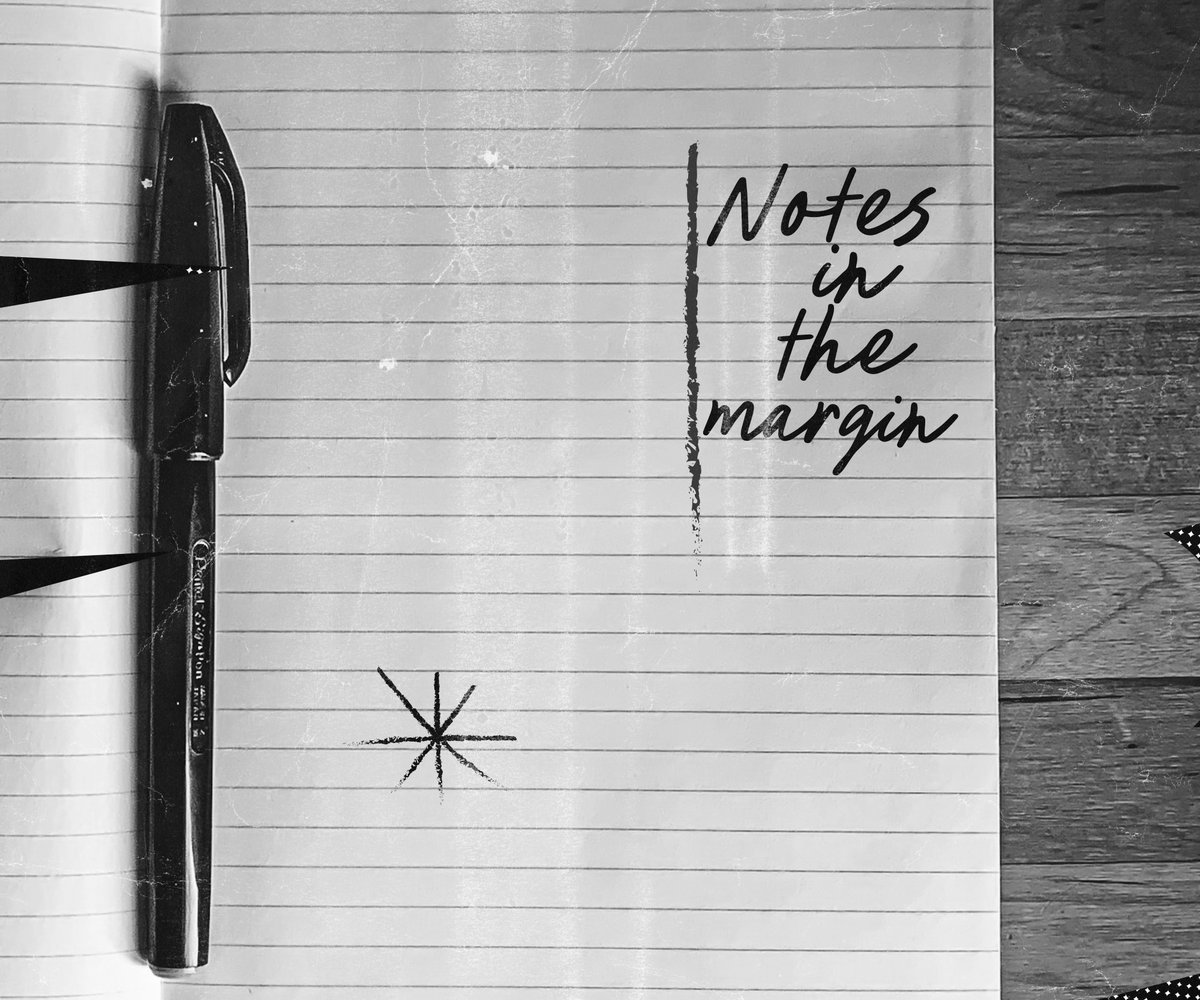 Notes
in
the
margin
Pentel Sign Pen
JAPAN